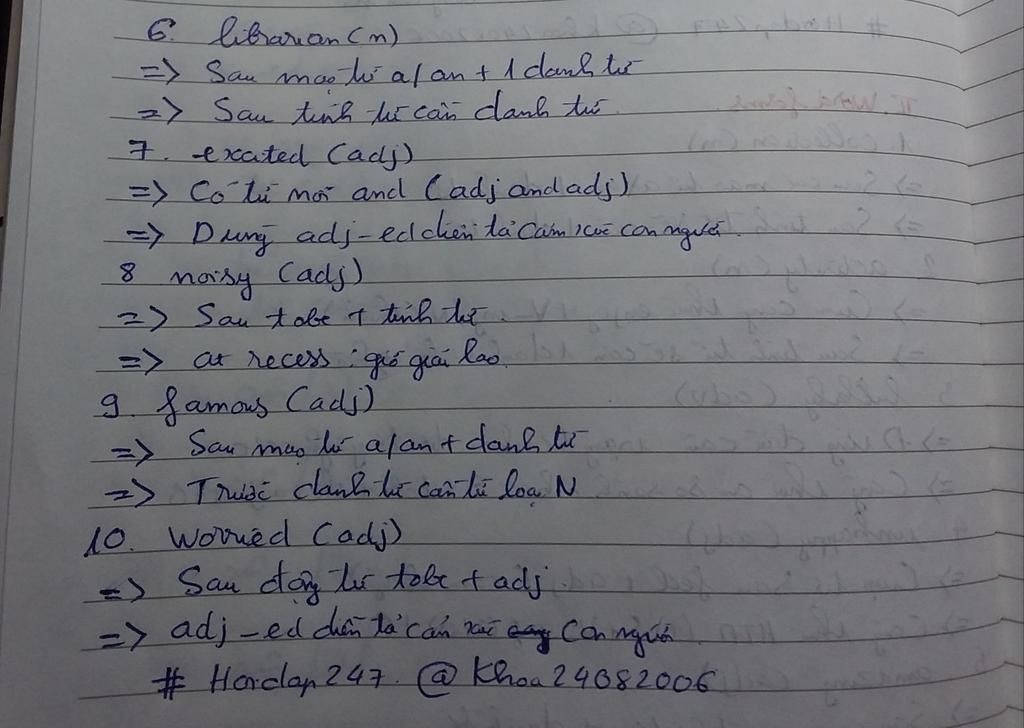 6. librarian (n)
=> Sau mạo từ a/an + 1 danh từ
=> Sau tính từ cần danh từ.
7. exated (adj)
=> Có từ nối and (adj and adj)
=> Dùng adj-ed diễn tả cảm xúc con người.
8 noisy (adj)
=> Sau tobe + tính từ.
=> at recess : giờ giải lao.
9. famous (adj)
=> Sau mạo từ a/an + danh từ
=> Trước danh từ cần từ loại N
10. Worried (adj)
=> Sau động từ tobe + adj.
=> adj-ed diễn tả cảm xúc con người.
# Hoidap247. @Khoa24082006